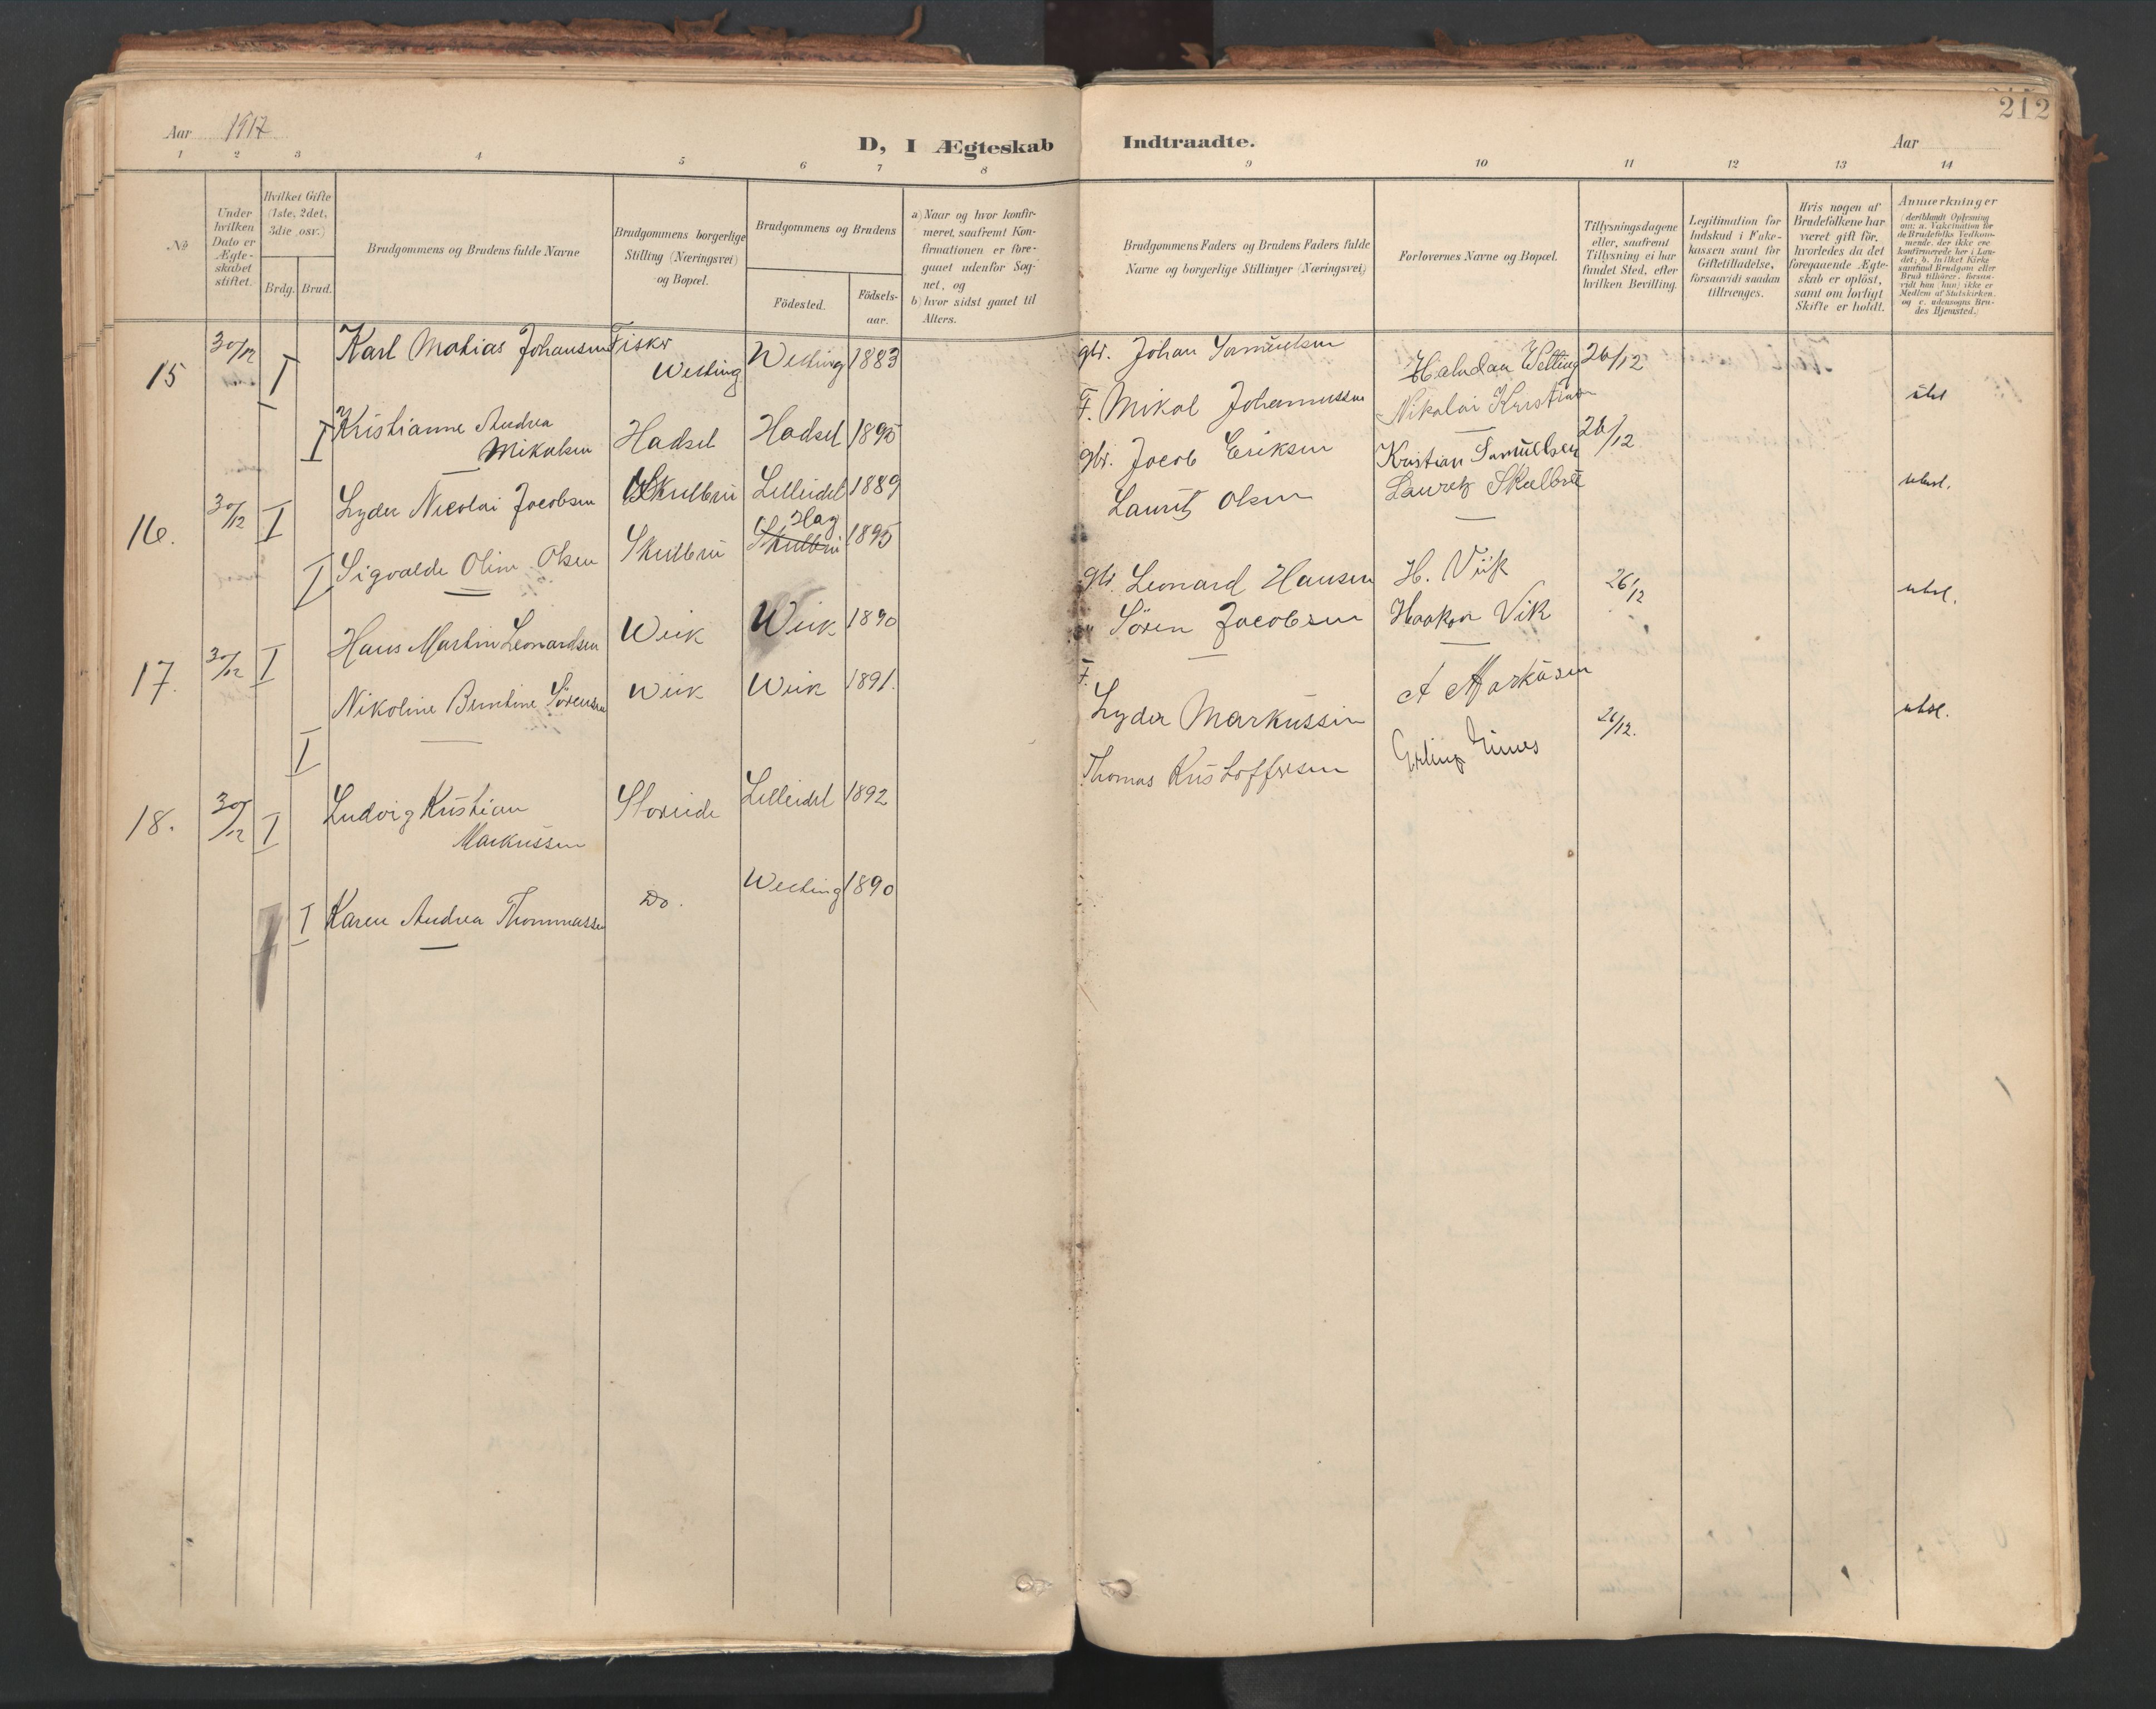 212
Aar 1917
D, I Ægteskab Indtraadte.
Aar
1 2 3 4 5 6 7 8 9 10 11 12 13 14
No
Under hvilken Dato er Ægte-skabet stiftet.
Hvilket Gifte (1ste, 2det, 3die, osv.)
Brdg. Brud.
Brudgommens og Brudens fulde Navne
Brudgommens borgerlige Stilling (Næringsvei) og Bopæl.
Brudgommens og Brudens
Födested. Födsels-aar.
a) Naar og hvor konfir-meret, saafremt Kon-firmationen er fore-gaaet udenfor Sog-net, og
b) hvor sidst gaaet til Alters.
Brudgommens Faders og Brudens Faders fulde Navne og borgerlige Stillinger (Næringsvei)
Forlovernes Navne og Bopæl.
Tillysningsdagene eller, saafremt Tillysning ei har fundet Sted, efter hvilken Bevilling.
Legitimation for Indskud i Enke-kassen samt for Giftetilladelse, forsaavidt saadan tiltrænges.
Hvis nogen af Brudefolkene har været gift för, hvorledes da det foregaaende Ægte-skab er oplöst, samt om lovligt Skifte er holdt.
Anmærkninger
(deriblandt Oplysning om: a. Vakcination for de Brudefolks Vedkom-mende, der ikke ere konfirmerede her i Lan-det; b. hvilket Kirke samfund Brudgom eller Brud tilhører, forsaa-vidt han (hun) ikke er Medlem af Statskirken, og c. udensogns Bru-des Hjemsted.)
15 30/12 I Karl Matias Johansen Fisker Wetting Wetting 1883 gbr. Johan Samuelsen Halvdan Wetting 26/12
I Kristianne Andrea Mikalsen Hadsel Hadsel 1895 F. Mikal Johannessen Nikolai Kristian
16. 30/12 I Lyder Nicolai Jacobsen Skulbru Lilleidet 1889 gbr. Jacob Eriksen Kristian Samuelsen 26/12
I Sigvalde Oline Olsen Skulbru Skulbru Hag 1895 Laurits Olsen Lauretz Skulbru
17. 30/12 I Hans Martin Leonardsen Wiik Wiik 1890 gbr. Leonard Hansen H. Viik 26/12
I Nikoline Berntine Sörensen Wiik Wiik 1891. Sören Jacobsen Haakon Vik
18. 30/12 I Ludvig Kristian Markussen Storeide Lilleidet 1892 F. Lyder Markussen A Markusen 26/12.
I Karen Andrea Thommassen Do. Wetting 1890 Thomas Kristoffersen Erling